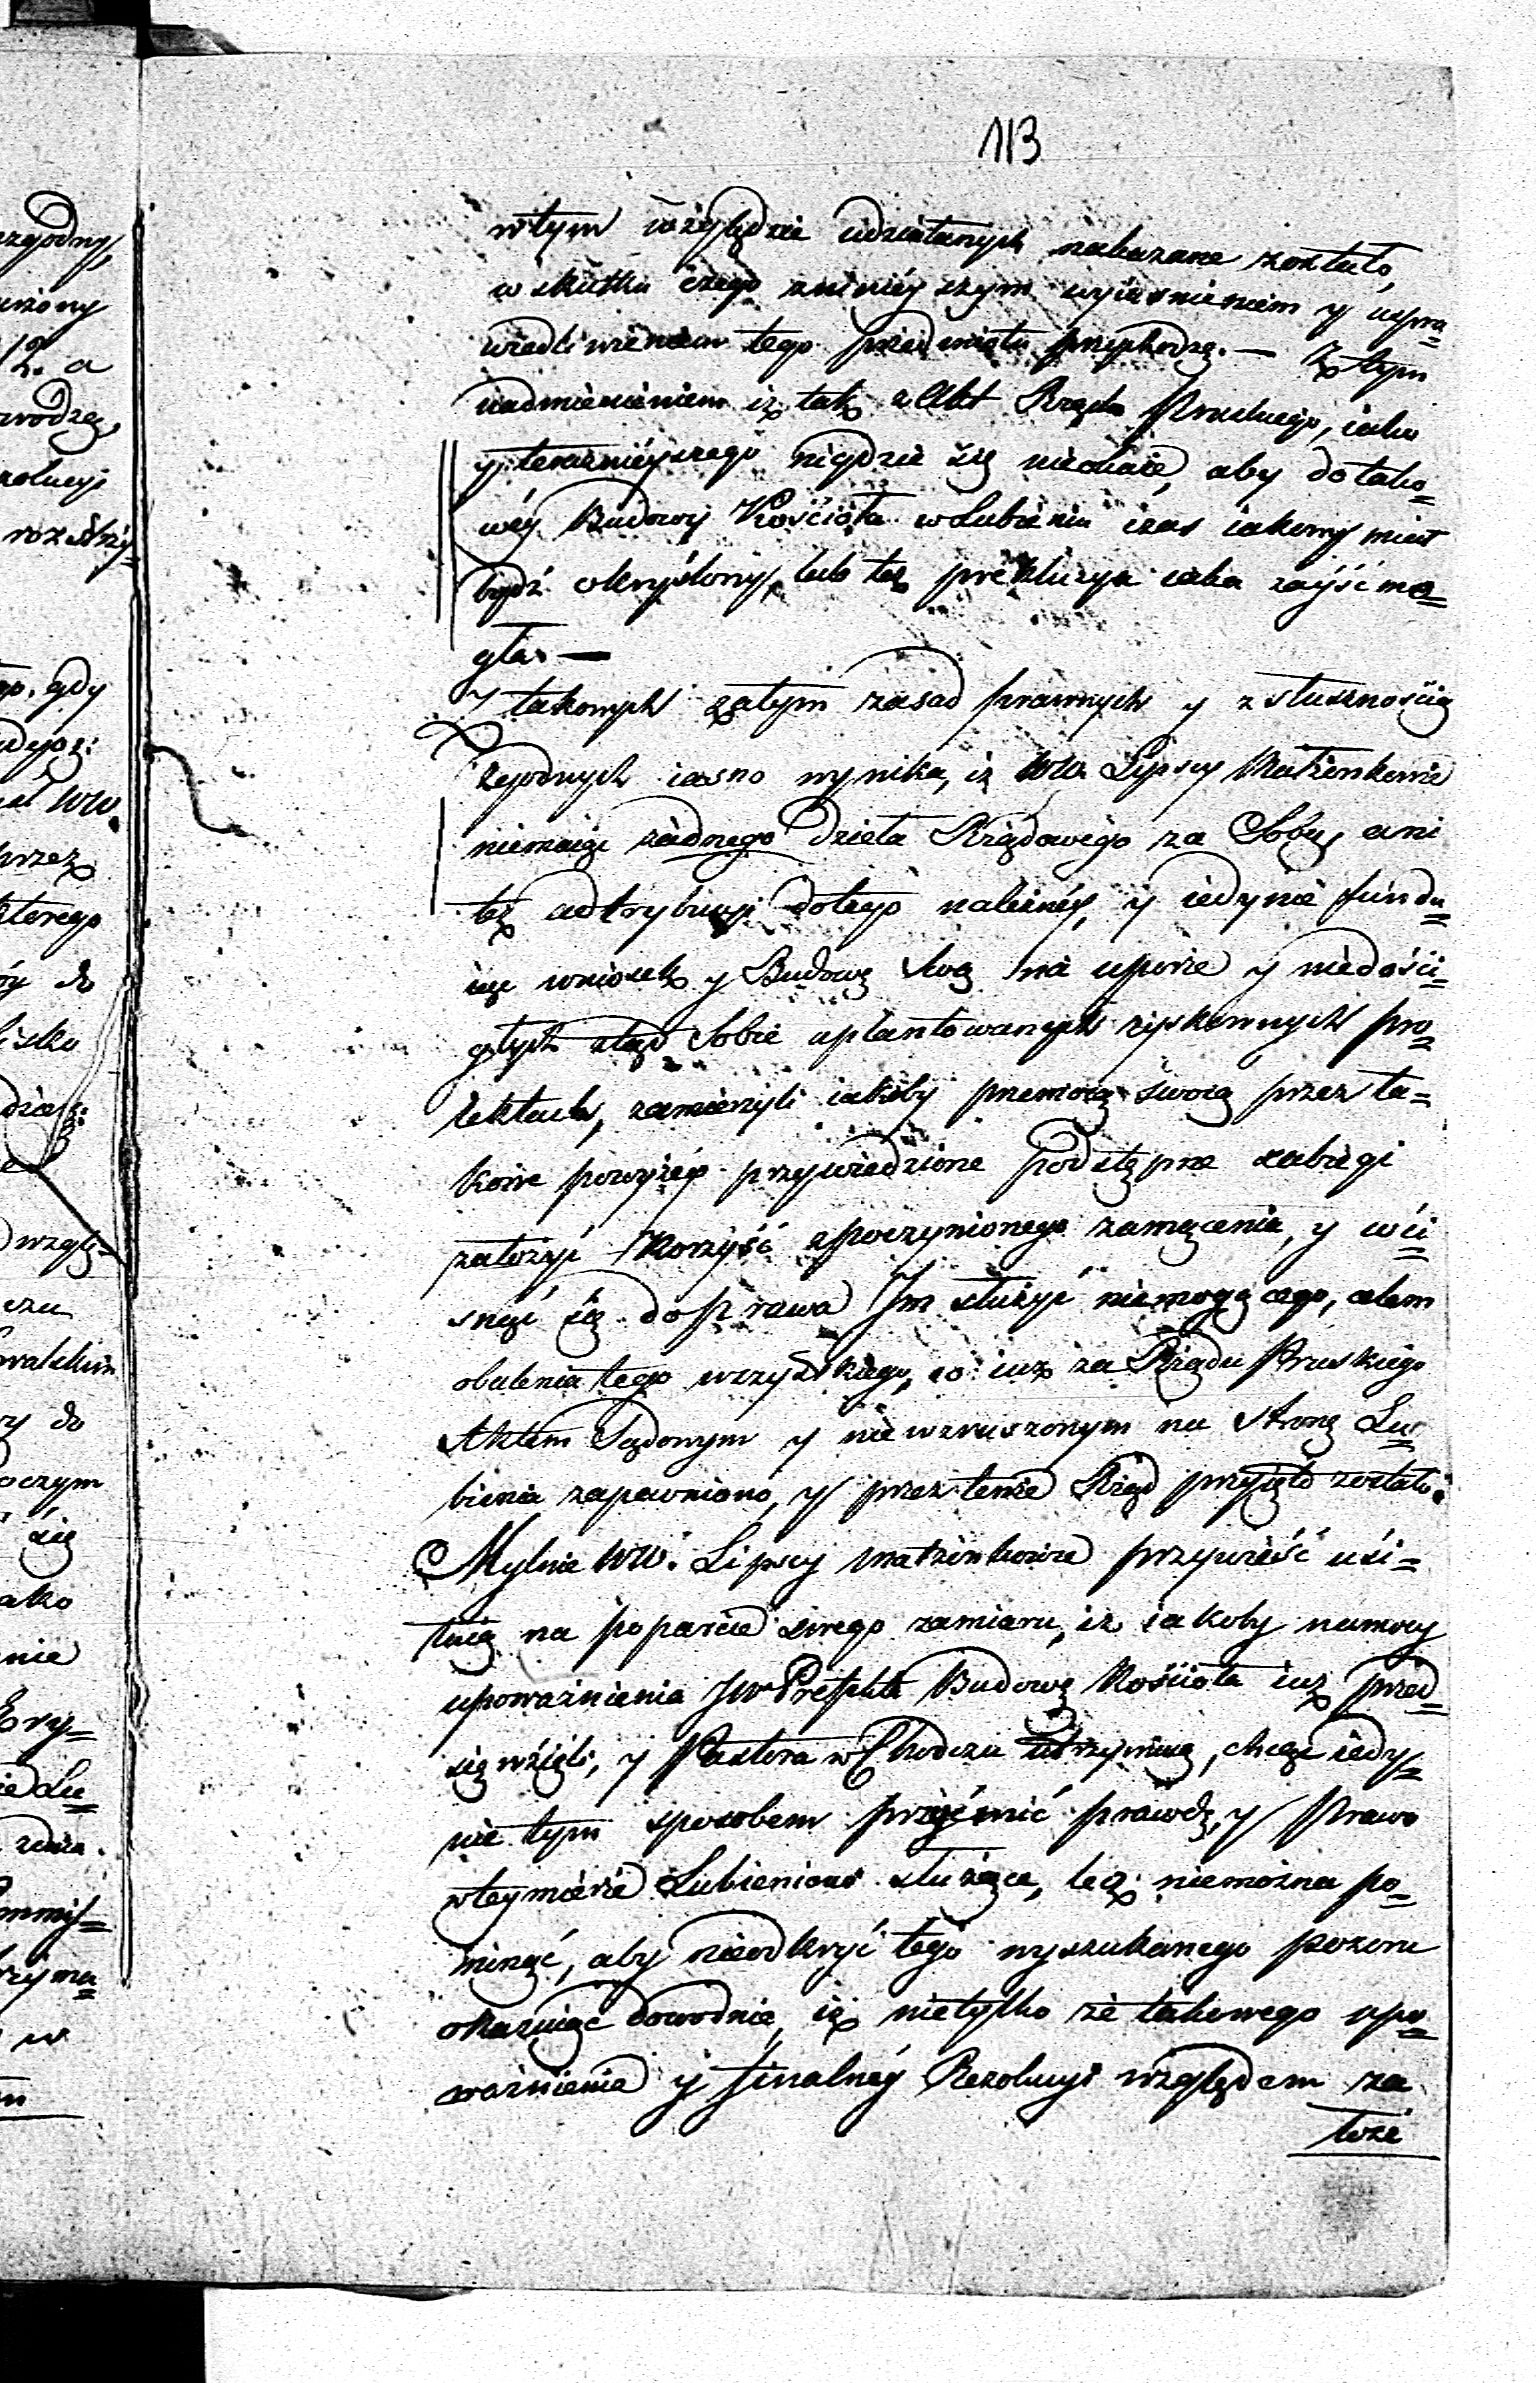 113
w tym względzie udziałanych nakazane zostało,
w skutku czego z ninieyszym wyiasnieniem y uspra=
wiedliwieniem tego przedmiotu przychodzę. — Z tym
nadmienieniem iż tak z Akt Rządu Pruskiego, iako
y teraznieyszego nigdzie się nieokaże, aby do tako=
wéy Budowy Kościoła w Lubieniu czas iakowy miał
bydź okryślony, lub też prekluzya iaka zayść mo=
gła. —
Z takowych zatym zasad prawnych y z słusznością
zgodnych iasno wynika, iż WW. Lipscy Małżonkowie
niemaiąc żadnego dzieła Rządowego za Sobą, ani
też adtrybucyi do tego należnéy, y iedynie fundu=
iąc wniosek y Budowę swą na uporze y niedości=
głych ztąd Sobie uplantowanych zyskownych pro=
iektach, zamierzyli iakoby przemocą swoią przez ta=
kowe powyżéy przywiedzione podstępne zabiegi
założyć korzyść z poczynionego zamącenia, y wci=
snąć się do prawa Im służyć niemogącego, celem
obalenia tego wszystkiego, co iuż za Rządu Pruskiego
Aktem Sądowym y niewzruszonym na stronę Lu=
bienia zapewniono, y przez tenże Rząd przyięto zostało.
Mylnie WW. Lipscy Małżonkowie przywieść usi=
łuią na poparcie swego zamiaru, iż iakoby namocy
upoważnienia JW Prefekta Budowę Kościoła iuż przed=
sięwzięli, y Pastora w Chodczu utrzymuią, chcąc iedy=
nie tym sposobem przyćmić prawdę, y Prawo
w teymierze Lubieniowi służące, lecz niemożna po=
minąć, aby nieodkryć tego wyszukanego pozoru
okazuiąc dowodnie, iż nietylko że takowego upo=
ważnienia y finalnéy Rezolucyi względem za
łoże